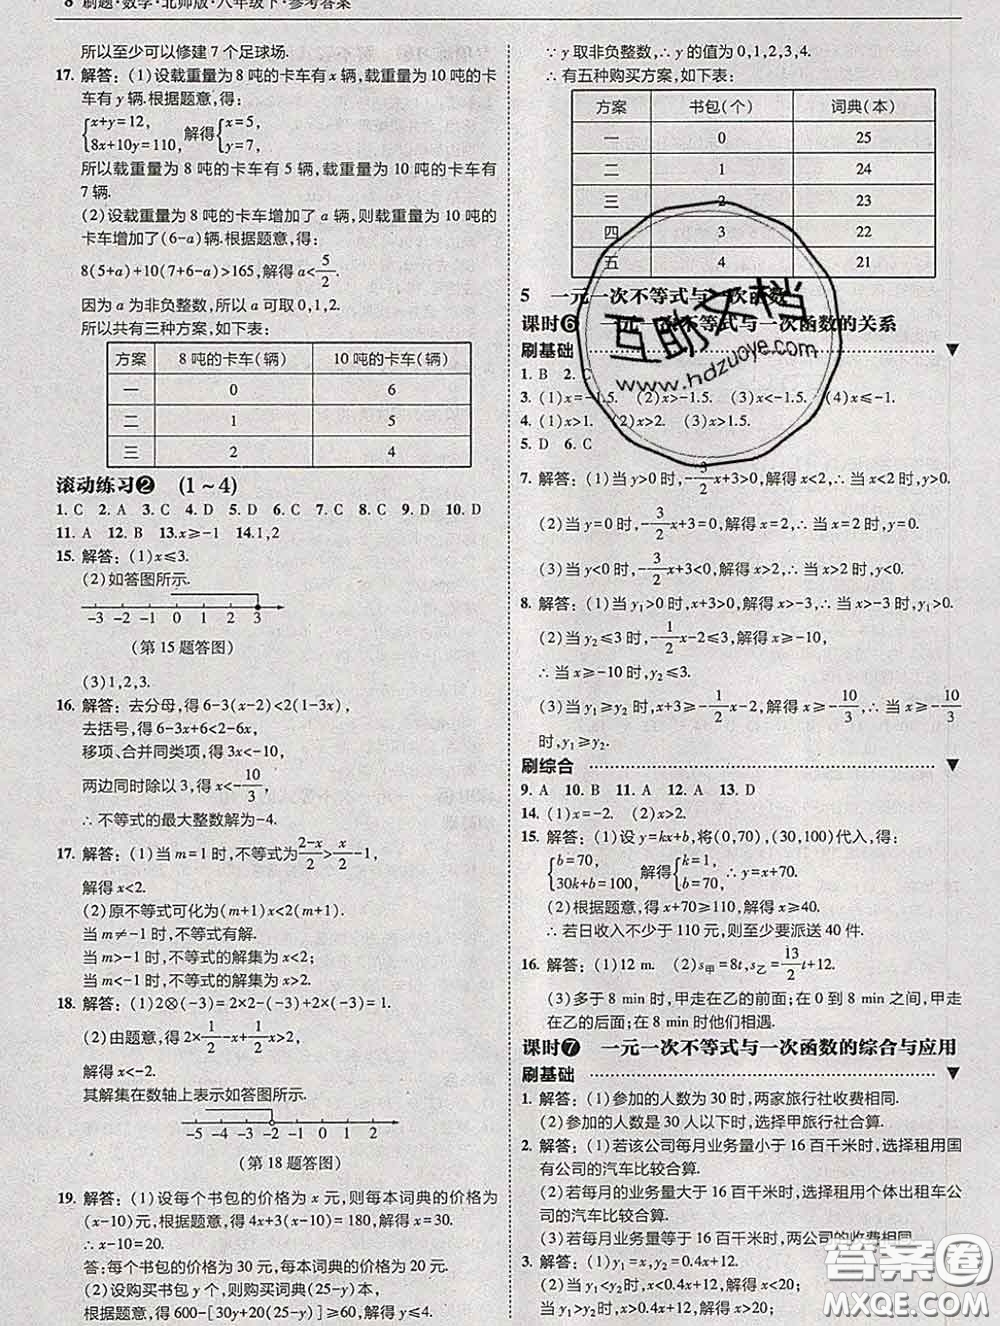 8 刷题·数学·北师版·八年级下·参考答案
所以至少可以修建 7 个足球场.
17. 解答: (1)设载重量为 8 吨的卡车有 x 辆,载重量为 10 吨的卡
车有 y 辆.根据题意,得:
{x+y=12, 8x+10y=110, 解得{x=5, y=7,
所以载重量为 8 吨的卡车有 5 辆,载重量为 10 吨的卡车有
7 辆.
(2)设载重量为 8 吨的卡车增加了 a 辆,则载重量为 10 吨的
卡车增加了(6-a)辆.根据题意,得:
8(5+a)+10(7+6-a)>165,解得 a<5/2.
因为 a 为非负整数,所以 a 可取 0,1,2.
所以共有三种方案,如下表:
方案 8 吨的卡车(辆) 10 吨的卡车(辆)
一 0 6
二 1 5
三 2 4
滚动练习❷ (1~4)
1. C 2. A 3. C 4. D 5. D 6. C 7. C 8. C 9. D 10. D
11. A 12. B 13. x≥-1 14. 1,2
15. 解答: (1)x≤3.
(2)如答图所示.
-3 -2 -1 0 1 2 3
(第 15 题答图)
(3)1,2,3.
16. 解答: 去分母,得 6-3(x-2)<2(1-3x),
去括号,得 6-3x+6<2-6x,
移项、合并同类项,得 3x<-10,
两边同时除以 3,得 x<-10/3,
∴ 不等式的最大整数解为-4.
17. 解答: (1)当 m=1 时,不等式为(2-x)/2>x/2-1,
解得 x<2.
(2)原不等式可化为(m+1)x<2(m+1).
当 m≠-1 时,不等式有解.
当 m>-1 时,不等式的解集为 x<2;
当 m<-1 时,不等式的解集为 x>2.
18. 解答: (1)2⊗(-3)=2×2-(-3)+2×(-3)=1.
(2)由题意,得 2×1/2-x+1/2x>2,
解得 x<-2.
其解集在数轴上表示如答图所示:
-5 -4 -3 -2 -1 0 1 2
(第 18 题答图)
19. 解答: (1)设每个书包的价格为 x 元,则每本词典的价格为
(x-10)元,根据题意,得 4x+3(x-10)=180,解得 x=30.
∴ x-10=20.
答:每个书包的价格为 30 元,每本词典的价格为 20 元.
(2)设购买书包 y 个,则购买词典(25-y)本.
根据题意,得 600-[30y+20(25-y)]≥60,解得 y≤4.
∵ y 取非负整数,∴ y 的值为 0,1,2,3,4.
∴ 有五种购买方案,如下表:
方案 书包(个) 词典(本)
一 0 25
二 1 24
三 2 23
四 3 22
五 4 21
5 一元一次不等式与一次函数
课时❻ 一元一次不等式与一次函数的关系
刷基础
1. B 2. C
3. (1)x=-1.5. (2)x>-1.5. (3)x<-1.5. (4)x≤-1.
4. (1)x>1. (2)x>2. (3)x>1.5.
5. D 6. C
7. 解答: (1)当 y>0 时,-3/2x+3>0,解得 x<2,∴ 当 x<2 时,y>0.
(2)当 y=0 时,-3/2x+3=0,解得 x=2,∴ 当 x=2 时,y=0.
(3)当 y<0 时,-3/2x+3<0,解得 x>2,∴ 当 x>2 时,y<0.
8. 解答: (1)当 y₁>0 时,x+3>0,解得 x>-3,∴ 当 x>-3 时,y₁>0.
(2)当 y₂≤3 时,-1/2x-2≤3,解得 x≥-10,
∴ 当 x≥-10 时,y₂≤3.
(3)当 y₁≥y₂ 时,x+3≥-1/2x-2,解得 x≥-10/3,∴ 当 x≥-10/3
时,y₁≥y₂.
刷综合
9. A 10. B 11. A 12. A 13. D
14. (1)x=-2. (2)x>2.
15. 解答: (1)设 y=kx+b,将(0,70),(30,100)代入,得:
{b=70, 30k+b=100, 解得{k=1, b=70, ∴ y=x+70.
(2)根据题意,得 x+70≥110,解得 x≥40.
∴ 若日收入不少于 110 元,则至少要派送 40 件.
16. 解答: (1)12 m. (2)s甲=8t,s乙=13/2t+12.
(3)多于 8 min 时,甲走在乙的前面;在 0 到 8 min 之间,甲走
在乙的后面;在 8 min 时他们相遇.
课时❼ 一元一次不等式与一次函数的综合与应用
刷基础
1. 解答: (1)参加的人数为 30 时,两家旅行社收费相同.
(2)参加的人数是 30 人以下时,选择甲旅行社合算.
2. 解答: (1)若该公司每月业务量小于 16 百千米时,选择租用国
有公司的汽车比较合算.
(2)若每月的业务量大于 16 百千米时,选择租用个体出租车公
司的汽车比较合算.
(3)若每月业务量等于 16 百千米时,两公司的收费相同.
3. 解答: (1)y₁=x,y₂=0.4x+12.
(2)当 y₁<y₂ 时,x<0.4x+12,解得 x<20;
当 y₁>y₂ 时,x>0.4x+12,解得 x>20;
互助文档
www.hdzuoye.com
答案圈
MXQE.COM